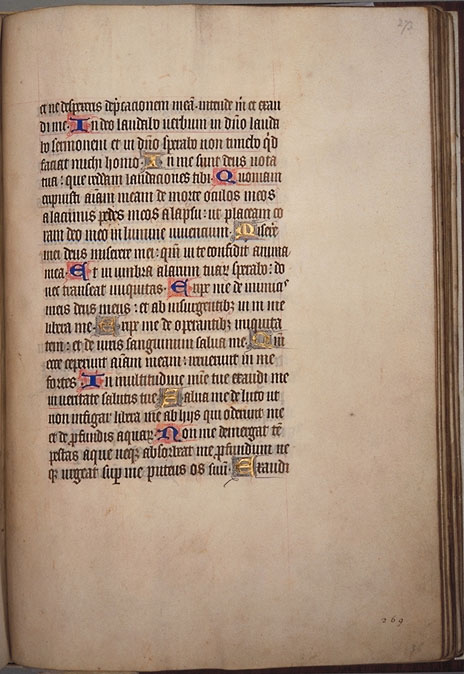 273
et ne despexeris dep̄cacionem meā. intende m̄ et exau
di me. In deo laudabo uerbum in dn̄o lauda
bo sermonem et in dn̄o sperabo non timebo qd̄
faciat michi homo. In me sunt deus uota
tua: que reddam laudaciones tibi. Quoniam
eripuisti aīam meam de morte oculos meos
a lacrimis pedes meos a lapsu: ut placeam co
ram deo meo in lumine uiuencium. Misere
mei deus miserere mei: qm̄ in te confidit anima
mea. Et in umbra alarum tuarꝝ sperabo: do
nec transeat iniquitas. Eripe me de inimicꝰ
meis deus meus: et ab insurgentibꝫ in me
libera me. Eripe me de operantibꝫ iniquita
tem: et de uiris sanguinum salua me. Qm̄
ecce ceperunt aīam meam: irruerunt in me
fortes. In multitudine mīe tue exaudi me
in ueritate salutis tue. Salua me de luto ut
non infigar libera me ab hijs qui oderunt me
et de ꝓfundis aquarꝝ. Non me demergat tē
pestas aque neqꝫ absorbeat me ꝓfundum ne
qꝫ urgeat sup̄ me puteus os suū. Exaudi
269